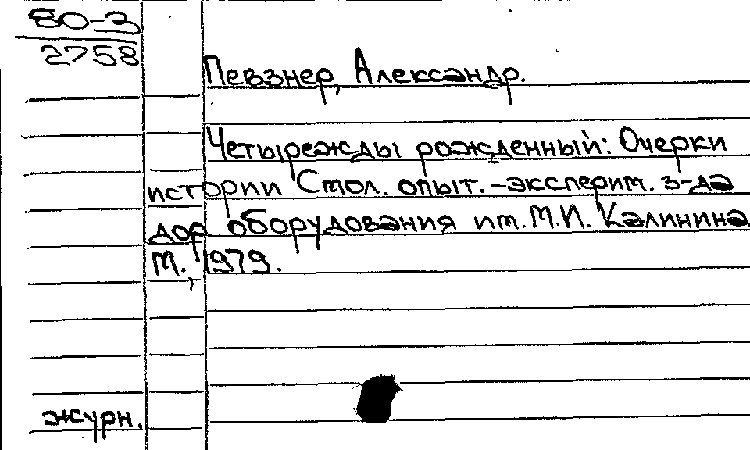 80-3
2758
Певзнер, Александр.
Четырежды рожденный: Очерки
истории Стол. опыт.-эксперим. з-да
дор. оборудования им. М.И. Калинина
М., 1979.
журн.